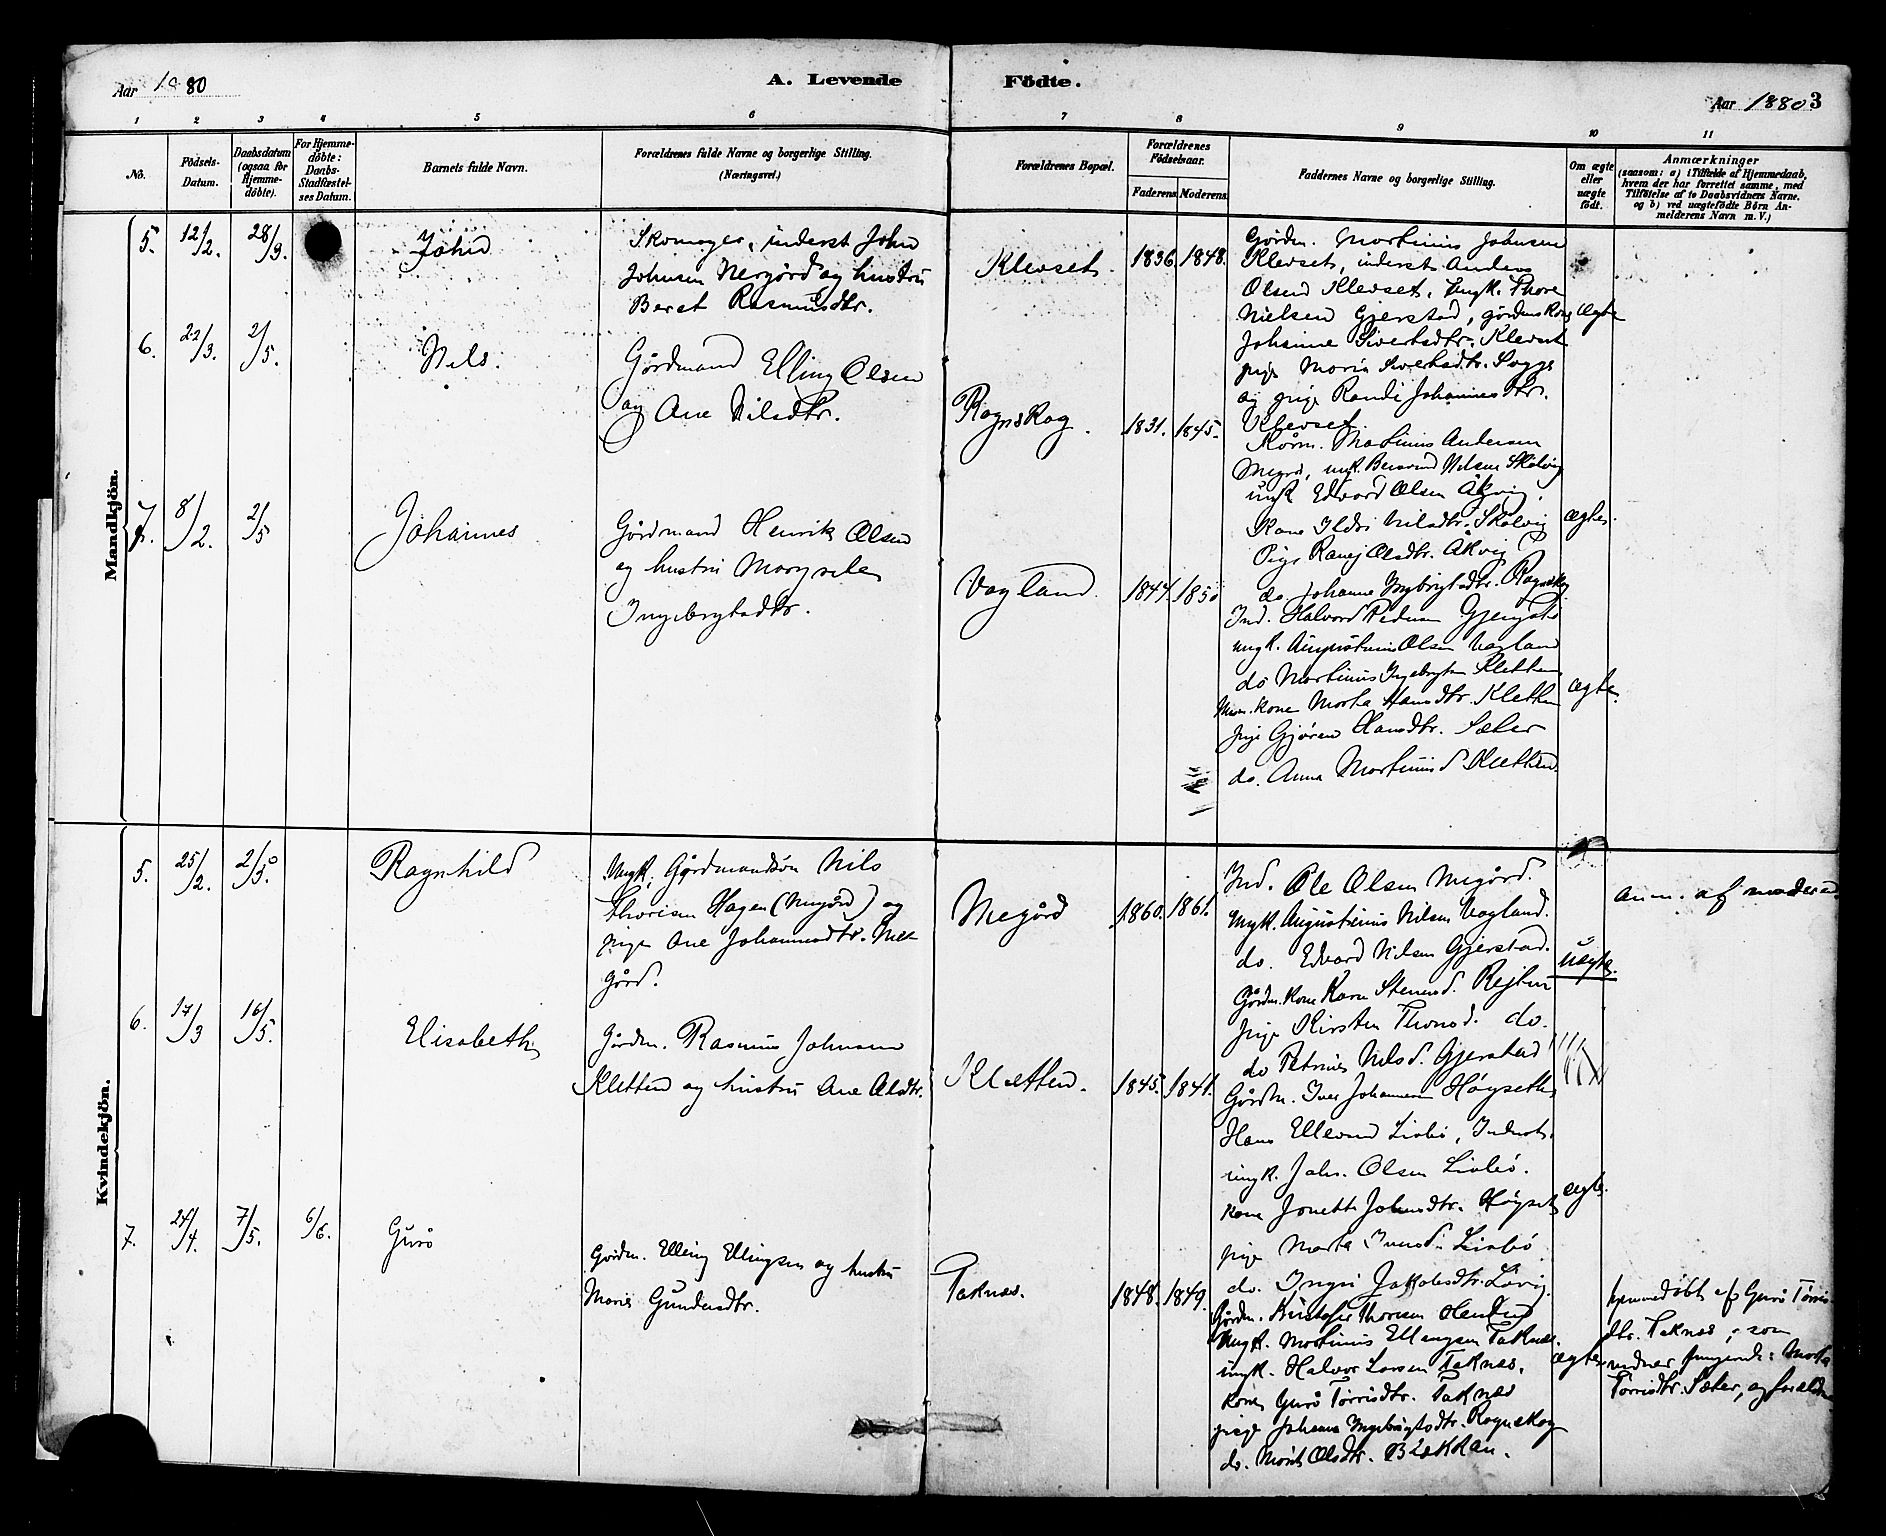 Aar 1880
A. Levende Födte.
Aar 1880 3
1 2 3 4 5 6 7 8 9 10 11
No.
Födsels-Datum.
Daabsdatum (ogsaa for Hjemme-döbte).
For Hjemme-döbte: Daabs-Stadfæstel-ses Datum.
Barnets fulde Navn.
Forældrenes fulde Navne og borgerlige Stilling.
(Næringsvei.)
Forældrenes Bopæl.
Forældrenes Födselsaar.
Faderens. Moderens.
Faddernes Navne og borgerlige Stilling.
Om ægte eller uægte födt.
Anmærkninger
(saasom: a) i Tilfælde af Hjemmedaab,
hvem der har forrettet samme, med
Tilföielse af to Daabsvidners Navne.
og b) ved uægtefödte Börn An-
melderens Navn m. V.)
Mandkjön.
5. 12/2. 28/3. John
Skomager, inderst John
Johnsen Nergård og hustru
Beret Rasmusdtr.
Klevset. 1836 1848.
Gårdm. Martinus Johnsen
Klevset, inderst Anders
Olsen Klevset, Ungk. Thore
Nielsen Gjerstad, gårdmskone
Johanne Sivertsdtr. Klevset
pige Marit Sivertsdtr. Sogge
og pige Randi Johannesdtr.
Klevset.
ægte
6. 22/3. 2/5. Nils.
Gårdmand Elling Olsen
og Ane Nilsdtr.
Rognskog. 1831. 1845.
Martinus Andersen
Megård, ungk. Nilsen Skålvig
ungk Edvard Olsen Åkvig.
Kone Ildri Nilsdtr. Skålvig
Pige Olsdtr. Åkvig
do Johanne Ingebrigtsdtr. Rognskog
ægte.
7. 8/2. 2/5 Johannes
Gårdmand Henrik Olsen
og hustru
Ingebrigtsdtr.
Vagland. 1844. 1850
Ind. Halvord Pedersen
ungk. Augustinus Olsen Vagland
do Martinus Ingebrigtsen Kletten
kone Marta Hansdtr. Kletten
pige Gjøren Hansdtr. Sæter
do. Anna Martinusd Kletten.
ægte.
Kvindekjön.
5. 25/2. 2/5. Ragnhild
Ungk. Gårdmandsøn Nils
Thoresen Hagen (Megård) og
pige Ane Johannesdtr. Me-
gård.
Megård 1860. 1861.
Ind. Ole Olsen Megård.
ungk. Augustinus Nilsen Vagland.
do. Edvard Nilsen Gjerstad.
Gårdm. kone Karen Stenersd.
pige Kirsten Thoresd. do.
do Petrine Nilsd. Gjerstad
uægte.
Anm. af moderen.
6. 17/3 16/5. Elisabeth
Gårdm. Rasmus Johnsen
Kletten og hustru Ane Olsdtr.
Kletten. 1845. 1841.
Gårdm. Iver Johannesen Høgseth
Hans Ellevsen Lisbø, Inderst.
ungk. Johs. Olsen Lisbø.
kone Jonetta Johnsdtr. Høgset
pige Marta Lisbø
do. Ingri Jakobsdtr.
ægte.
7. 24/4. 7/5. 6/6. Guro
Gårdm. Elling Ellingsen og hustru
Marit Gundersdtr.
Taknæs. 1848. 1849.
Gårdm. Kristofer Thoresen
Ungk. Martinus Ellingsen Taknæs.
ungk. Halvor Larsen Taknæs.
kone Guro Torrisdtr. Taknæs
pige Johanna Ingebrigtsdtr. Rognskog
do. Marit Olsdtr. Blekken.
ægte.
hjemmedøbt af Guro Torris-
dtr. Taknæs; som
vidner fungerede: Marta
Torrisdtr. Sæter, og forældre